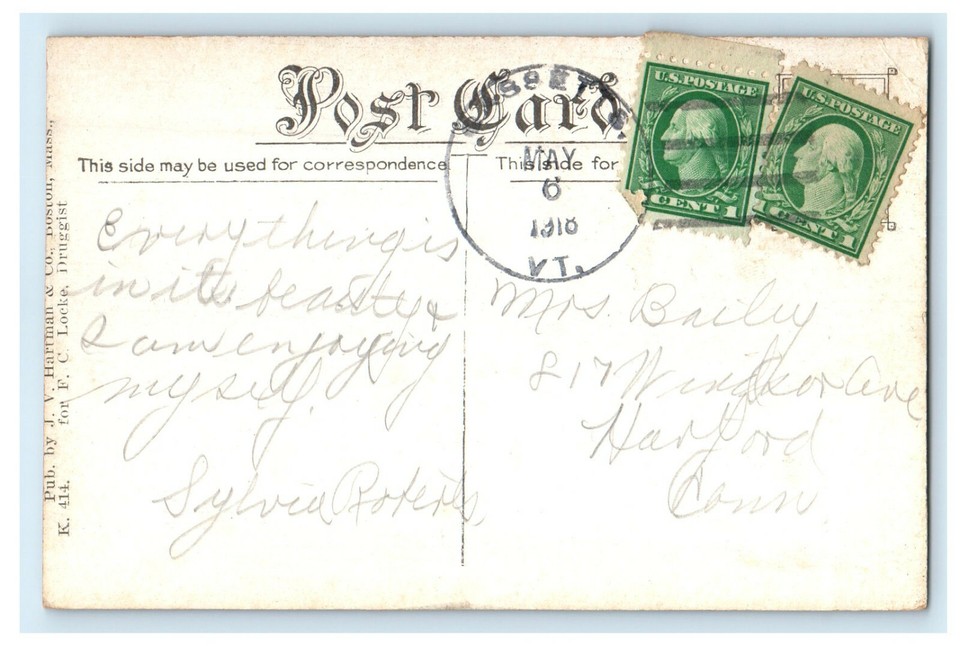 Post Card
This side may be used for correspondence
This side for
U.S. POSTAGE
CENT 1
U.S. POSTAGE
1 CENT 1
MAY
6
1918
VT.
Everything is
in its beauty &
I am enjoying
myself.
Sylvia Roberts,
Mrs. Bailey
817 Windsor Ave
Harford
Conn
Pub. by J. V. Hartman & Co., Boston, Mass.,
for F. C. Locke, Druggist
K. 414.